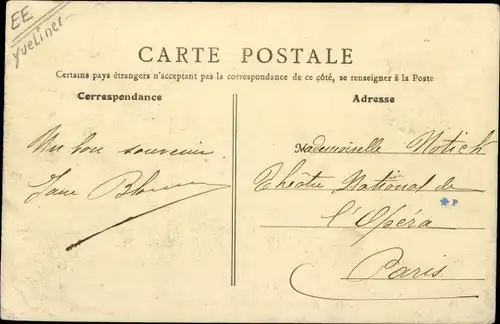 EE
yveliner
CARTE POSTALE
Certains pays étrangers n'acceptant pas la correspondance de ce côté, se renseigner à la Poste
Correspondance
Adresse
Un bon souvenir
Jane
Mademoiselle Notick
Théâtre National de
l'Opéra
Paris